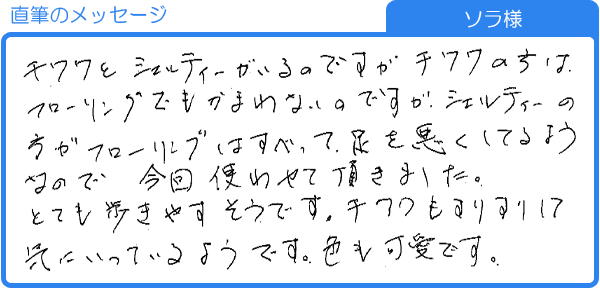 直筆のメッセージ
ソラ様
チワワと シェルティーがいるのですが チワワの方は
フローリングでもかまわないのですが、シェルティーの
方がフローリングはすべって、足を悪くしてるよう
なので 今回 使わせて頂きました。
とても歩きやすそうです。チワワもすりすりして
気にいっているようです。色も可愛です。